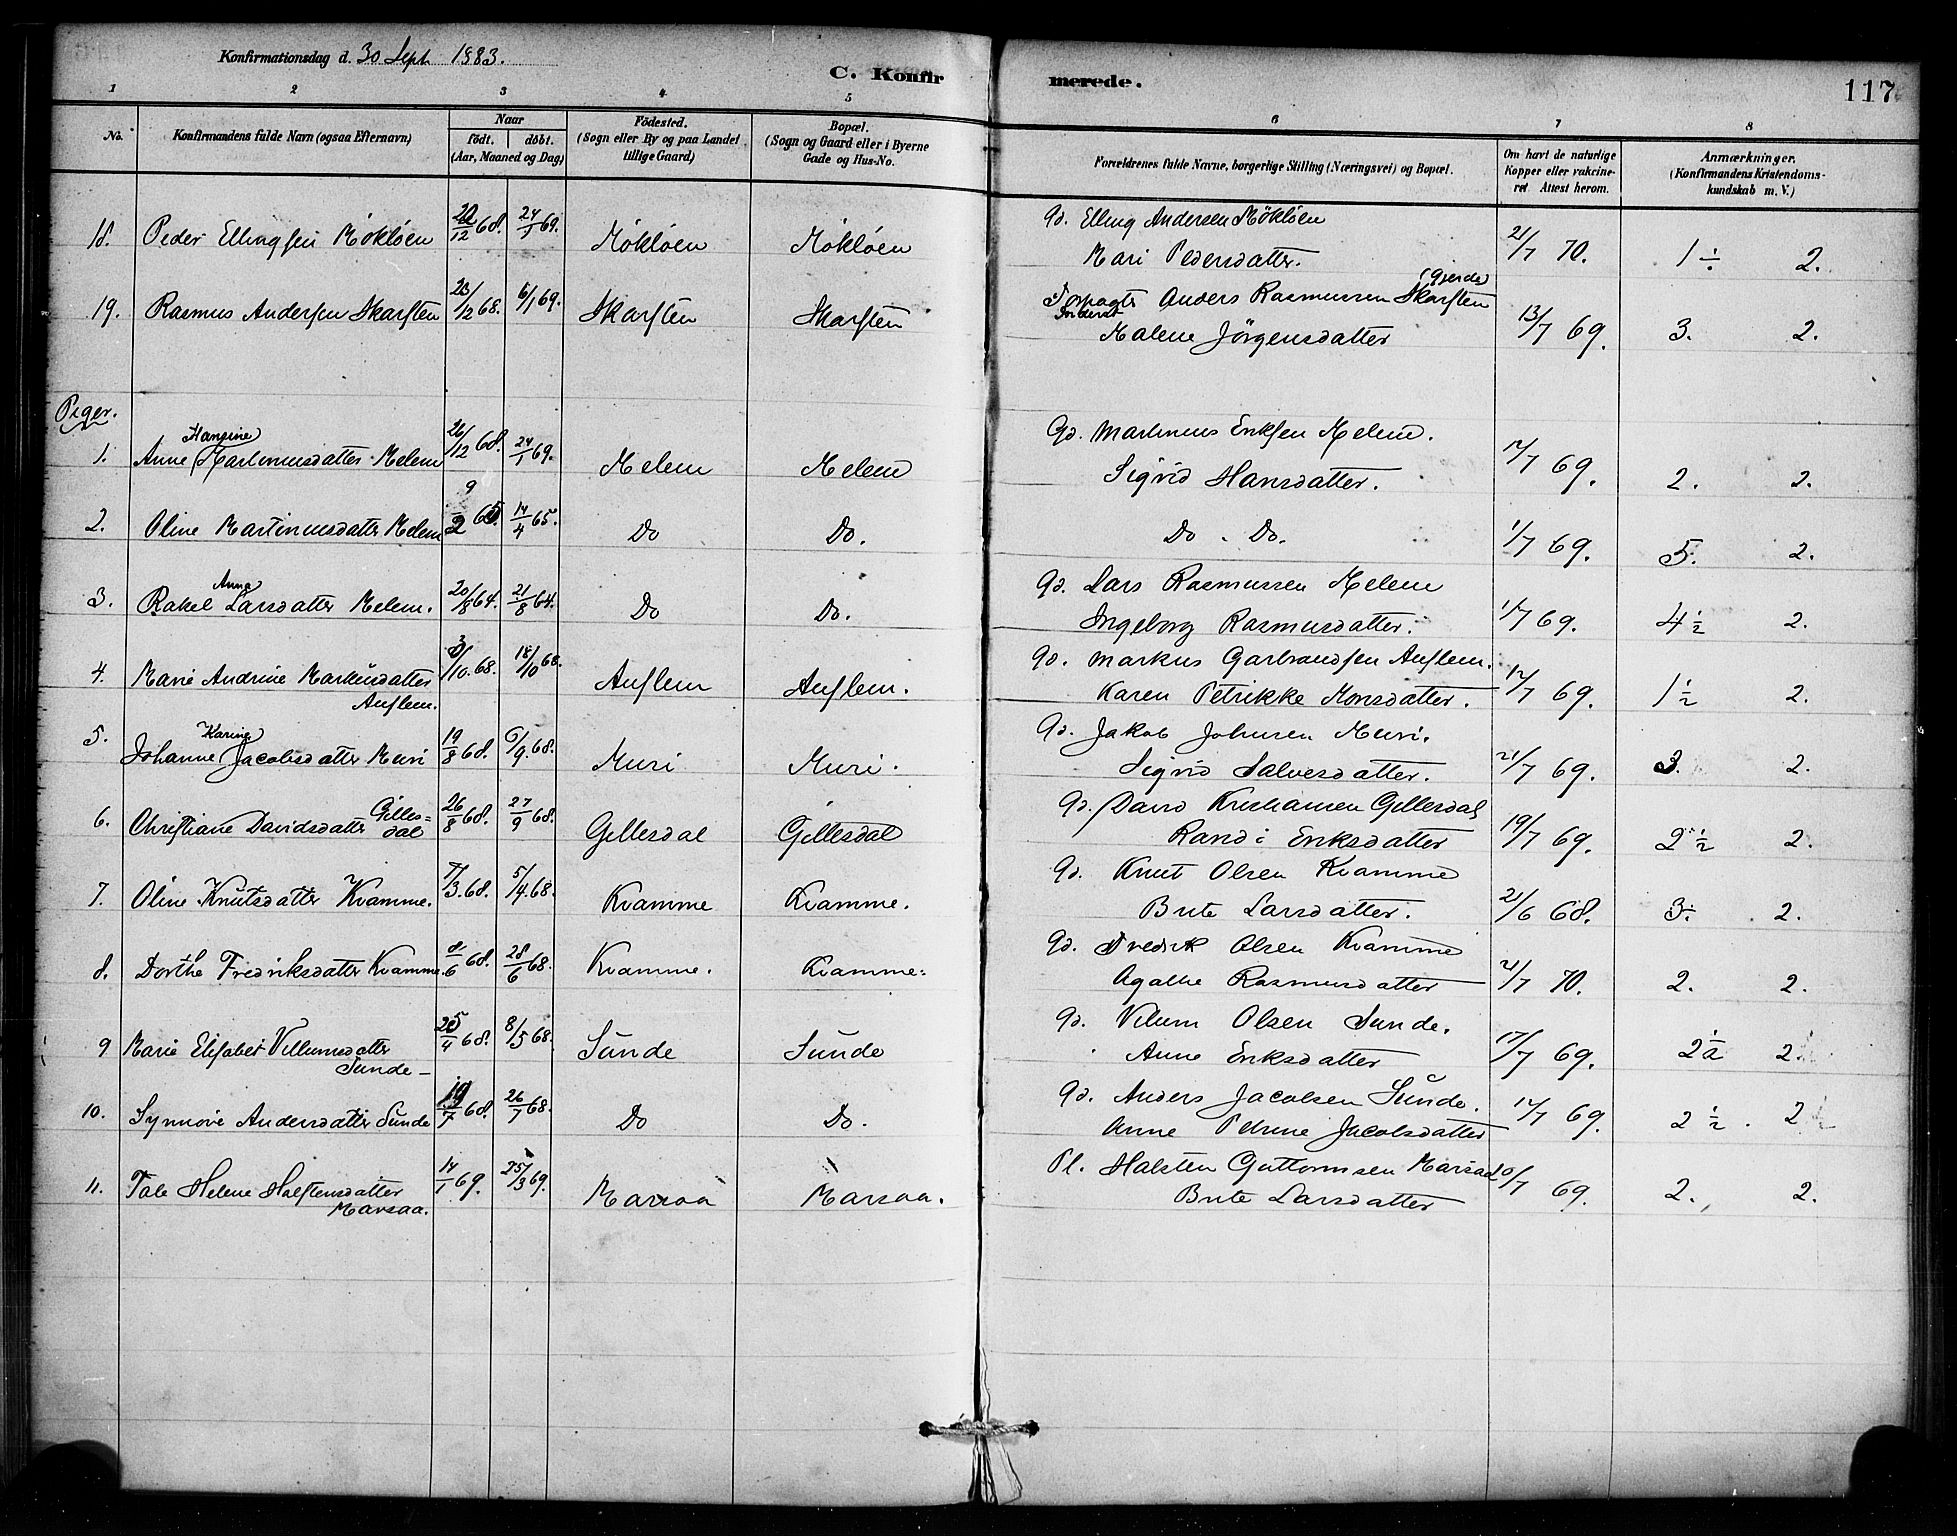 Konfirmationsdag d. 30 Sept 1883.
C. Konfirmerede.
117
1 2 3 4 5 6 7 8
No. Konfirmandens fulde Navn (ogsaa Efternavn) Naar födt. döbt. (Aar, Maaned og Dag) Födested. (Sogn eller By og paa Landet tillige Gaard) Bopæl. (Sogn og Gaard eller i Byerne Gade og Hus-No. Forældrenes fulde Navne, borgerlige Stilling (Næringsvei) og Bopæl. Om havt de naturlige Kopper eller vakcineret Attest herom. Anmærkninger. (Konfirmandens Kristendomskundskab m. V.)
18. Peder Ellingsen Mökløen 20/12 68. 24/1 69. Mökløen Mökløen Gd. Elling Andersen Mökløen
Mari Pedersdatter. 21/7 70. 1 ÷ 2.
19. Rasmus Andersen Skarsten 23/12 68. 6/1 69. Skarsten Skarsten Anders Rasmussen Skarsten (Gjerde)
Malene Jörgensdatter 13/7 69. 3. 2.
Piger.
1. Anne Hansine Martinusdatter Melem 26/12 68. 24/1 69. Melem Melem Gd. Martinus Eriksen Melem.
Sigrid Hansdatter. 17/7 69. 2. 2.
2. Oline Martinusdatter Melem 9/2 65. 14/4 65. Do Do. Do. Do. 1/7 69. 5. 2.
3. Rakel Anna Larsdatter Melem. 20/8 64. 21/8 64. Do Do. Gd. Lars Rasmussen Melem
Ingeborg Rasmusdatter. 17/7 69. 4 1/2 2.
4. Marie Andrine Markusdatter Auflem. 3/10. 68. 18/10 68. Auflem Auflem. Gd. Markus Garbrandsen Auflem.
Karen Petrikke Monsdatter. 17/7 69. 1 1/2 2.
5. Johanne Karine Jacobsdatter Muri 19/8 68. 6/9. 68. Muri Muri. Gd. Jakob Johnsen Muri.
Sigrid Salvesdatter. 21/7 69. 3. 2.
6. Christiane Davidsdatter Gillesdal 26/8 68. 27/9 68. Gillesdal Gillesdal Gd. David Kristiansen Gillesdal
Randi Eriksdatter 19/7 69. 2 1/2 2.
7. Oline Knutsdatter Kvamme. 7/3. 68. 5/4. 68. Kvamme Kvamme. Gd. Knut Olsen Kvamme
Brite Larsdatter. 21/6 68. 3. 2.
8. Dorthe Fredriksdatter Kvamme. 8/6 68. 28/6 68. Kvamme. Kvamme. Gd. Fredrik Olsen Kvamme
Agathe Rasmusdatter 21/7 70. 2. 2.
9 Marie Elisabet Villumsdatter Sunde 25/4 68. 8/5 68. Sunde Sunde Gd. Vilum Olsen Sunde.
Anne Eriksdatter 17/7 69. 2 1/2 2
10. Synnöve Andersdatter Sunde 19/7 68. 26/7 68. Do Do. Gd. Anders Jacobsen Sunde.
Anne Petrine Jacobsdatter 17/7 69. 2 1/2. 2
11. Tale Helene Halstensdatter Marsaa. 14/1 69. 25/3 69. Marsaa Marsaa. Pl. Halsten Guttormsen Marsaa
Brite Larsdatter 69. 2. 2.